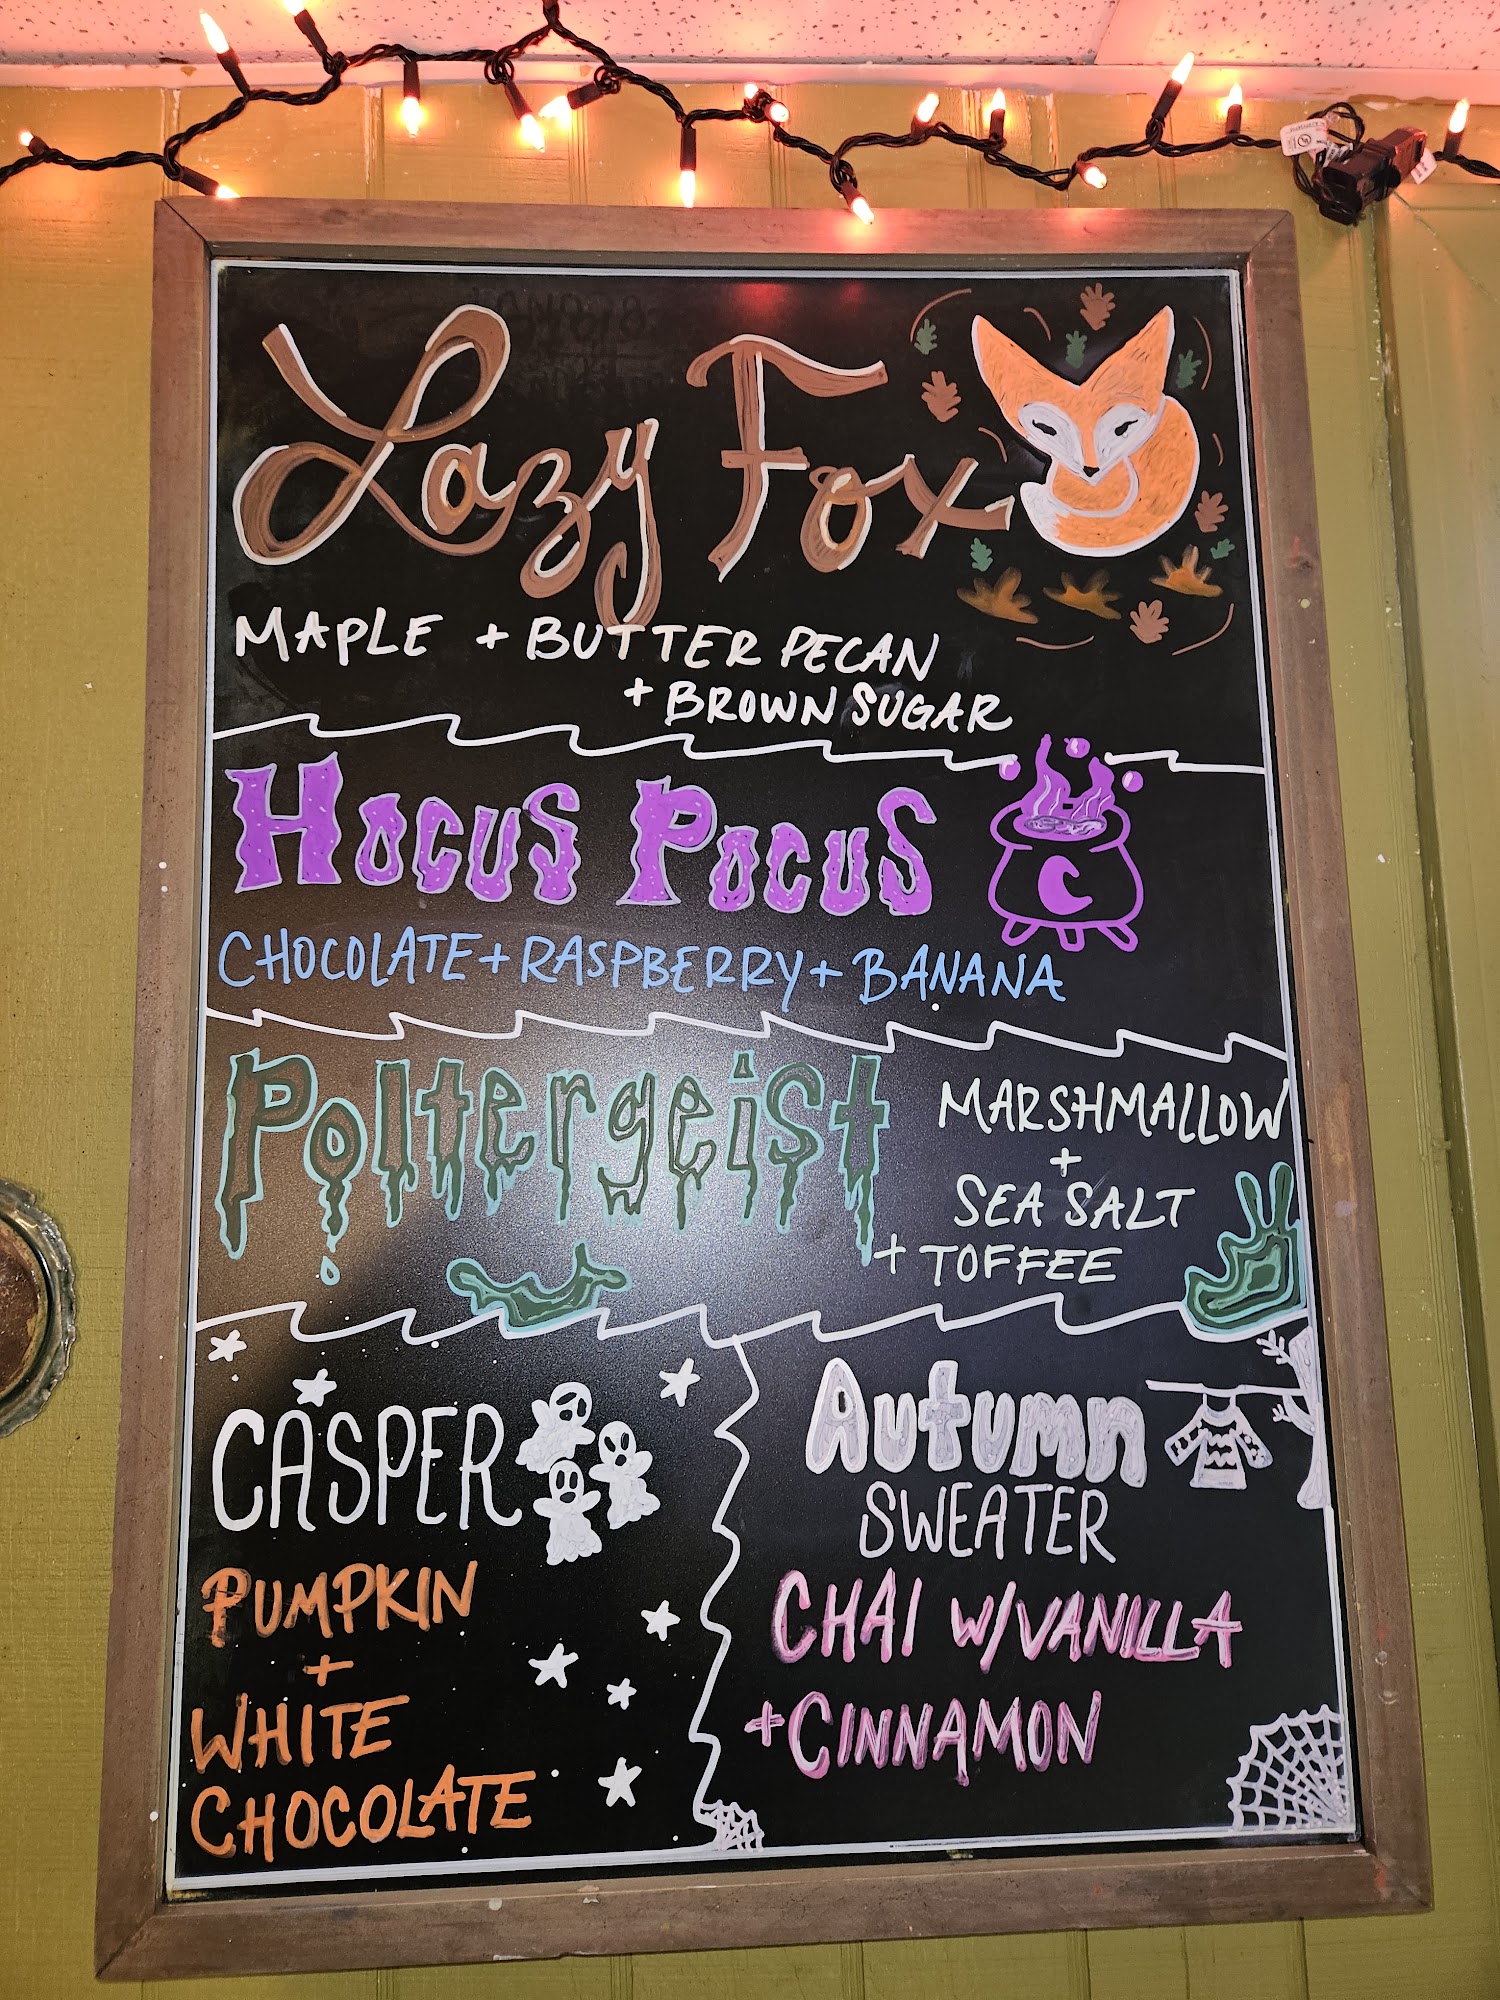 Lazy Fox
MAPLE + BUTTER PECAN
+ BROWN SUGAR
HOCUS POCUS
CHOCOLATE + RASPBERRY + BANANA
Poltergeist
MARSHMALLOW
+
SEA SALT
+ TOFFEE
CASPER
PUMPKIN
+
WHITE
CHOCOLATE
Autumn
SWEATER
CHAI W/VANILLA
+CINNAMON